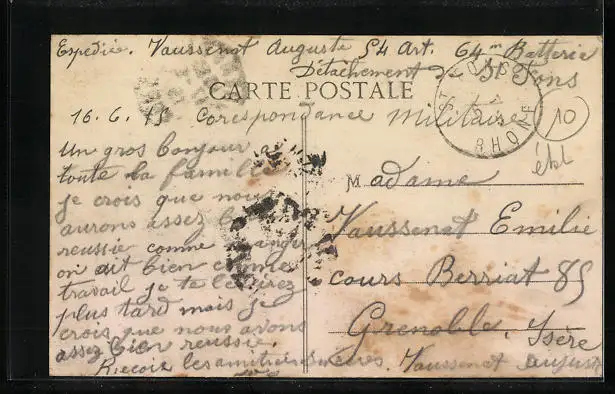 Espedié. Vaussenat Auguste 54 Art. 64me Batterie
Détachement de St Fons
CARTE POSTALE
16.6.15 Corespondance Militaire
RHONE
10
Un gros bonjour a
toute la famille
je crois que nous
aurons assez
reussie comme
on ait bien comme
travail je te le
plus tard mais je
crois que nous avons
assez bien reussie.
Madame
Vaussenat Emilie
cours Berriat 85
Grenoble. Isère
Recois les amitiés Vaussenat Auguste